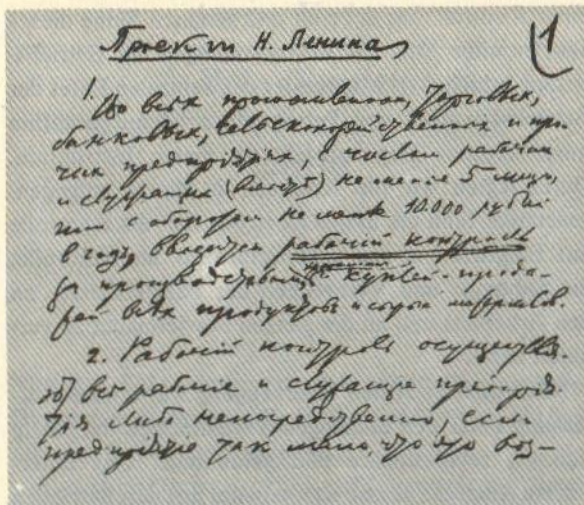 Проект Н. Ленина
1
1. Во всѣх промышленных, торговых,
банковых, сельскохозяйственных и про-
чих предпріятіях, с числом рабочих
и служащих (вмѣстѣ) не менѣе 5 лиц,
или с оборотом не менѣе 10.000 рублей
в год, вводится рабочій контроль
за производством, храненіем и куплей-прода-
жей всѣх продуктов и сырых матеріалов.
2. Рабочій контроль осуществля-
ют всѣ рабочіе и служащіе предпрія-
тія либо непосредственно, если
предпріятіе так мало, что это воз-